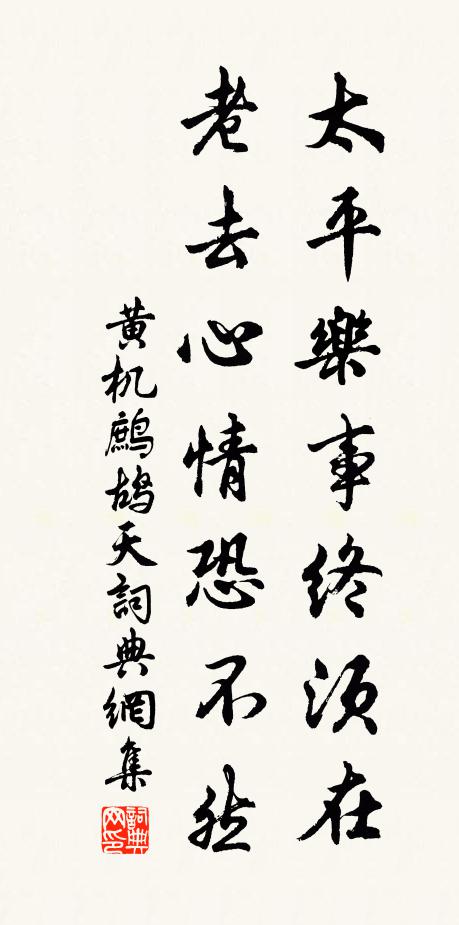 太平樂事終須在
老去心情恐不然
黄机鷓鴣天詞典網集
詞典網印